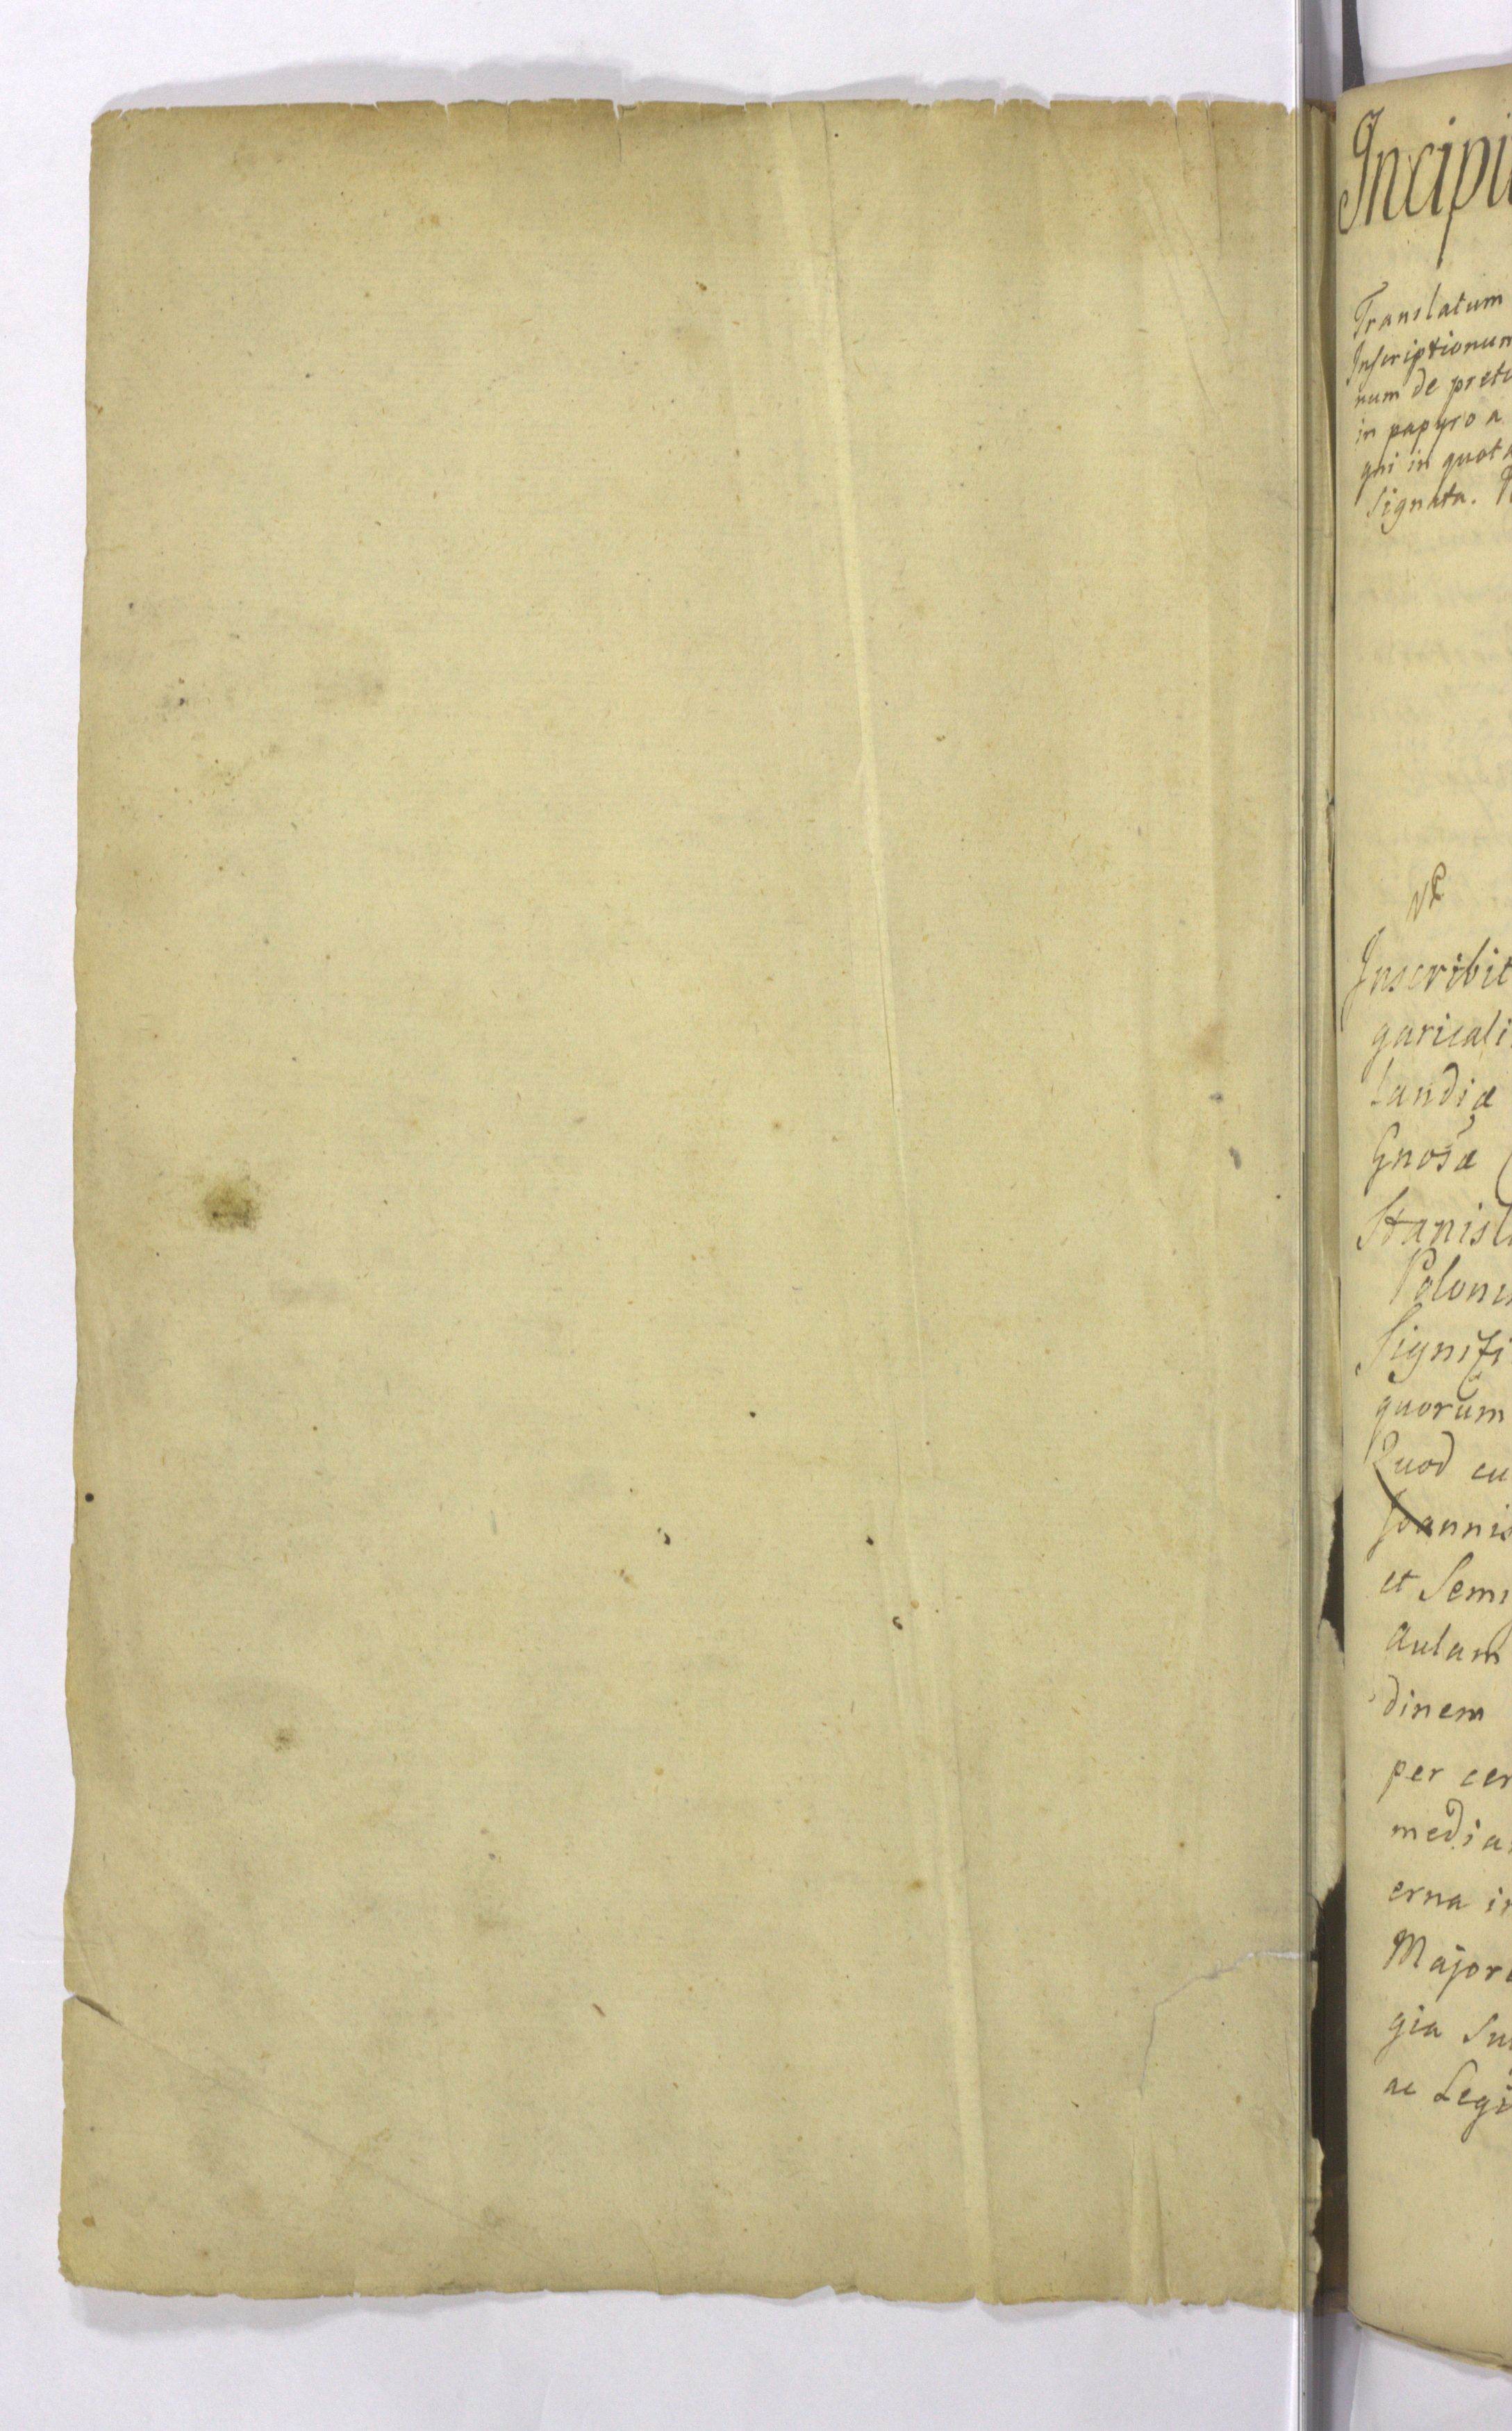 Incipi
Translatum
Inscriptionum
num de prete
in papyro a
qui in quot
signata.
Inscribit
garicali
landiæ
Gnosæ
Stanisl
Polon
Signifi
quorum
Quod cu
Joannis
et Semi
Aulam
dinem
per cer
media
erna in
Majore
gia Su
ac Legi